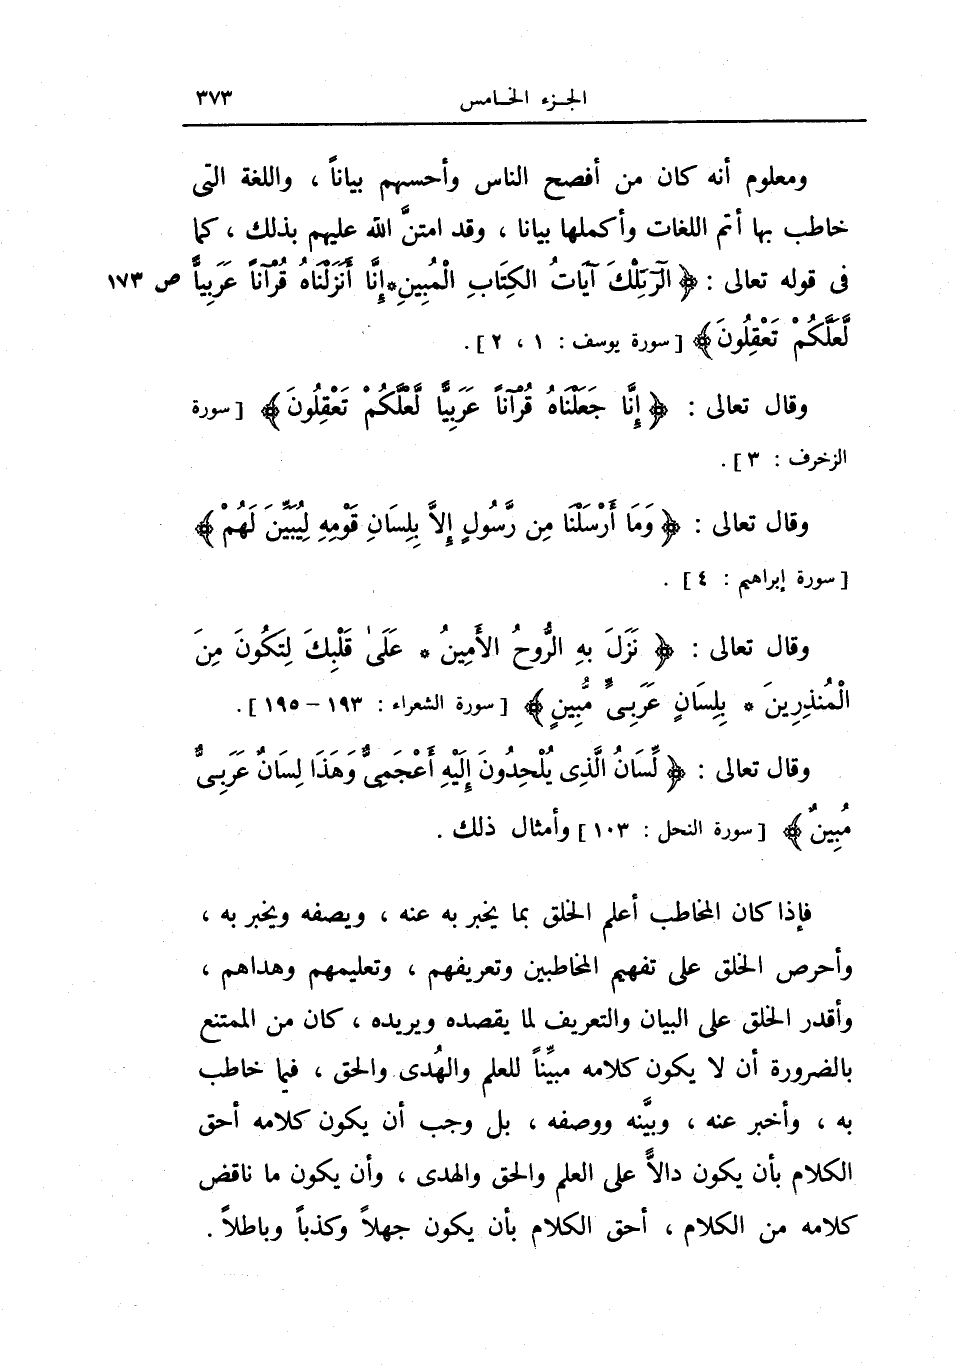 الجزء الخامس ٣٧٣
ومعلوم أنه كان من أفصح الناس وأحسنهم بياناً ، واللغة التى
خاطب بها أتم اللغات وأكملها بيانا ، وقد امتنَّ الله عليهم بذلك ، كما
فى قوله تعالى : ﴿ الٓرَ تِلْكَ آيَاتُ الكِتَابِ الْمُبِينِ * إِنَّا أَنزَلْنَاهُ قُرْآناً عَرَبِياًّ ص ١٧٣
لَّعَلَّكُمْ تَعْقِلُونَ ﴾ [ سورة يوسف : ١ ، ٢ ] .
وقال تعالى : ﴿ إِنَّا جَعَلْنَاهُ قُرْآناً عَرَبِيًّا لَّعَلَّكُمْ تَعْقِلُونَ ﴾ [ سورة
الزخرف : ٣ ] .
وقال تعالى : ﴿ وَمَا أَرْسَلْنَا مِن رَّسُولٍ إِلاَّ بِلِسَانِ قَوْمِهِ لِيُبَيِّنَ لَهُمْ ﴾
[ سورة إبراهيم : ٤ ] .
وقال تعالى : ﴿ نَزَلَ بِهِ الرُّوحُ الأَمِينُ * عَلَىٰ قَلْبِكَ لِتَكُونَ مِنَ
الْمُنذِرِينَ * بِلِسَانٍ عَرَبِىٍّ مُّبِينٍ ﴾ [ سورة الشعراء : ١٩٣ – ١٩٥ ] .
وقال تعالى : ﴿ لِّسَانُ الَّذِى يُلْحِدُونَ إِلَيْهِ أَعْجَمِىٌّ وَهَذَا لِسَانٌ عَرَبِىٌّ
مُبِينٌ ﴾ [ سورة النحل : ١٠٣ ] وأمثال ذلك .
فإذا كان المخاطب أعلم الخلق بما يخبر به عنه ، ويصفه ويخبر به ،
وأحرص الخلق على تفهيم المخاطبين وتعريفهم ، وتعليمهم وهداهم ،
وأقدر الخلق على البيان والتعريف لما يقصده ويريده ، كان من الممتنع
بالضرورة أن لا يكون كلامه مبيِّناً للعلم والهُدى والحق ، فيما خاطب
به ، وأخبر عنه ، وبيَّنه ووصفه ، بل وجب أن يكون كلامه أحق
الكلام بأن يكون دالاًّ على العلم والحق والهدى ، وأن يكون ما ناقض
كلامه من الكلام ، أحق الكلام بأن يكون جهلاً وكذباً وباطلاً .